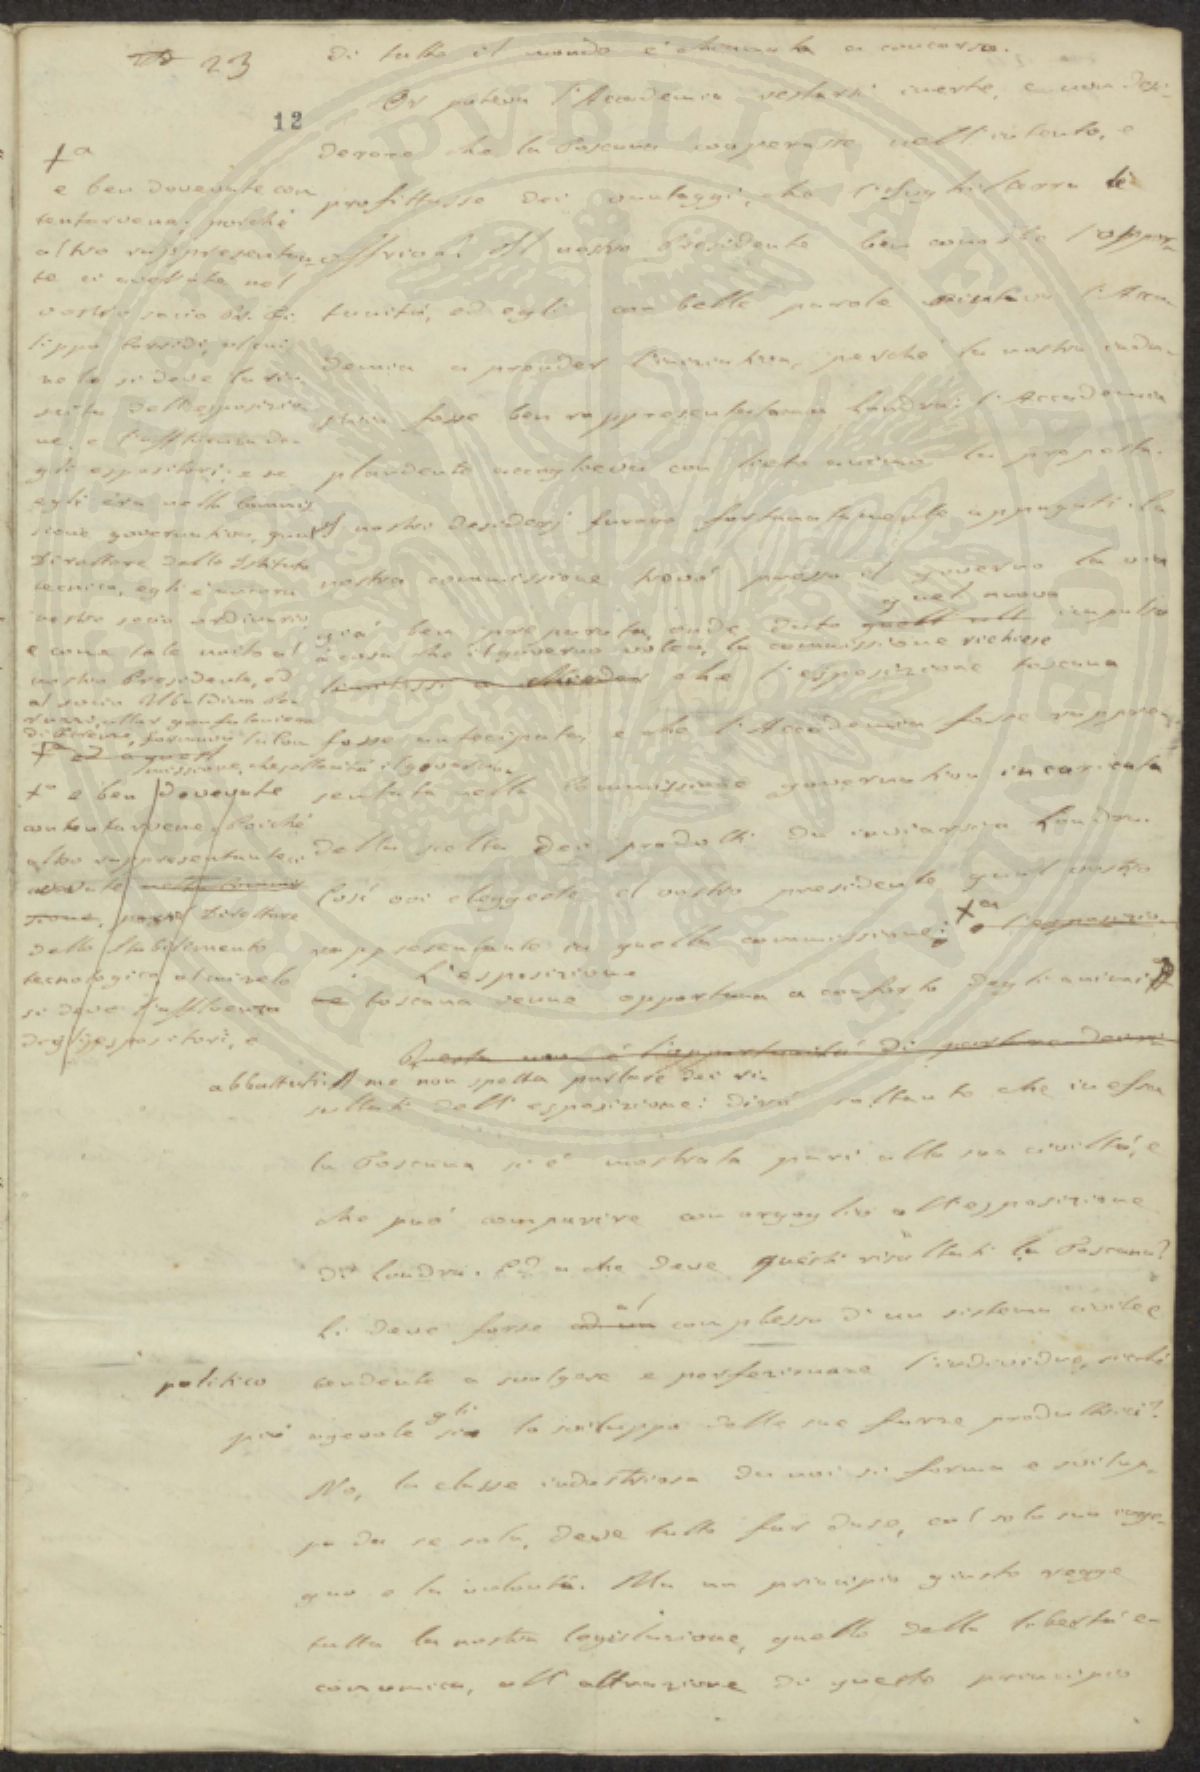 23
12
di tutto il mondo è chiamata a concorso.
Or poteva l'Accademia restarsi inerte, e non desi-
derare che la Toscana cooperasse nell'intento, e
profittasse dei vantaggi, che l'Inghilterra le
offriva? Il nostro Presidente ben conobbe l'oppor-
tunità, ed egli con belle parole l'Acca-
demia a prender l'iniziativa, perché la nostra indu-
stria fosse ben rappresentata a Londra: l'Accademia
plaudente accoglieva con lieto animo la proposta.
I nostri desiderj furono fortunatamente appagati. La
nostra commissione trovò presso il governo la via
già ben preparata, onde dato quel nuovo impulso
a cosa che il governo voleva, la commissione richiese
che l'esposizione toscana
fosse anticipata, e che l'Accademia fosse rappre-
sentata nella Commissione governativa incaricata
della scelta dei prodotti da inviarsi a Londra.
Così voi eleggeste il vostro presidente qual vostro
rappresentante in quella commissione; +a e l'esposizio-
L'esposizione
ne toscana venne opportuna a conforto degli animi
Questa non è l'opportunità di parlare
abbattuti. A me non spetta parlare dei ri-
sultati dell'esposizione: dirò soltanto che in essa
la Toscana si è mostrata pari alla sua civiltà, e
che può comparire con orgoglio all'esposizione
di Londra. Ed a che deve questi risultati la Toscana?
Li deve forse ad un al complesso di un sistema civile e
politico tendente a svolgere e perfezionare l'individuo, sicché
più agevole gli sia lo sviluppo delle sue forze produttrici?
No, la classe industriosa da noi si forma e svilup-
pa da se sola, deve tutto far da se, col solo suo inge-
gno e la volontà. Ma un principio giusto regge
tutta la nostra legislazione, quello della libertà e-
conomica, all'attuazione di questo principio
+a
e ben dovevate con
tentarvene; poiché
altro rappresentan-
te ci aveste nel
vostro socio Fi-
lippo Corridi, al cui
zelo si deve la riu-
scita dell'esposizio-
ne, e l'affluenza de-
gli espositori; e se
egli era nella Commis
sione governativa, qual
Direttore dello Istituto
tecnico, egli è ancora
nostro socio ordinario,
e come tale unito al
nostro Presidente, ed
al socio Ubaldino Pe-
ruzzi, allor gonfaloniere
di Firenze, formava la Com
missione, che il governo
+a e ben dovevate
contentarvene. Poiché
altro rappresentante ci
aveste nella Commis
sione, Direttore
dello Stabilimento
tecnologico, al cui zelo
si deve l'affluenza
degli espositori, e